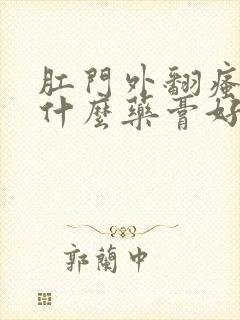 肛門外翻瘙
什麼藥膏好
郭蘭中